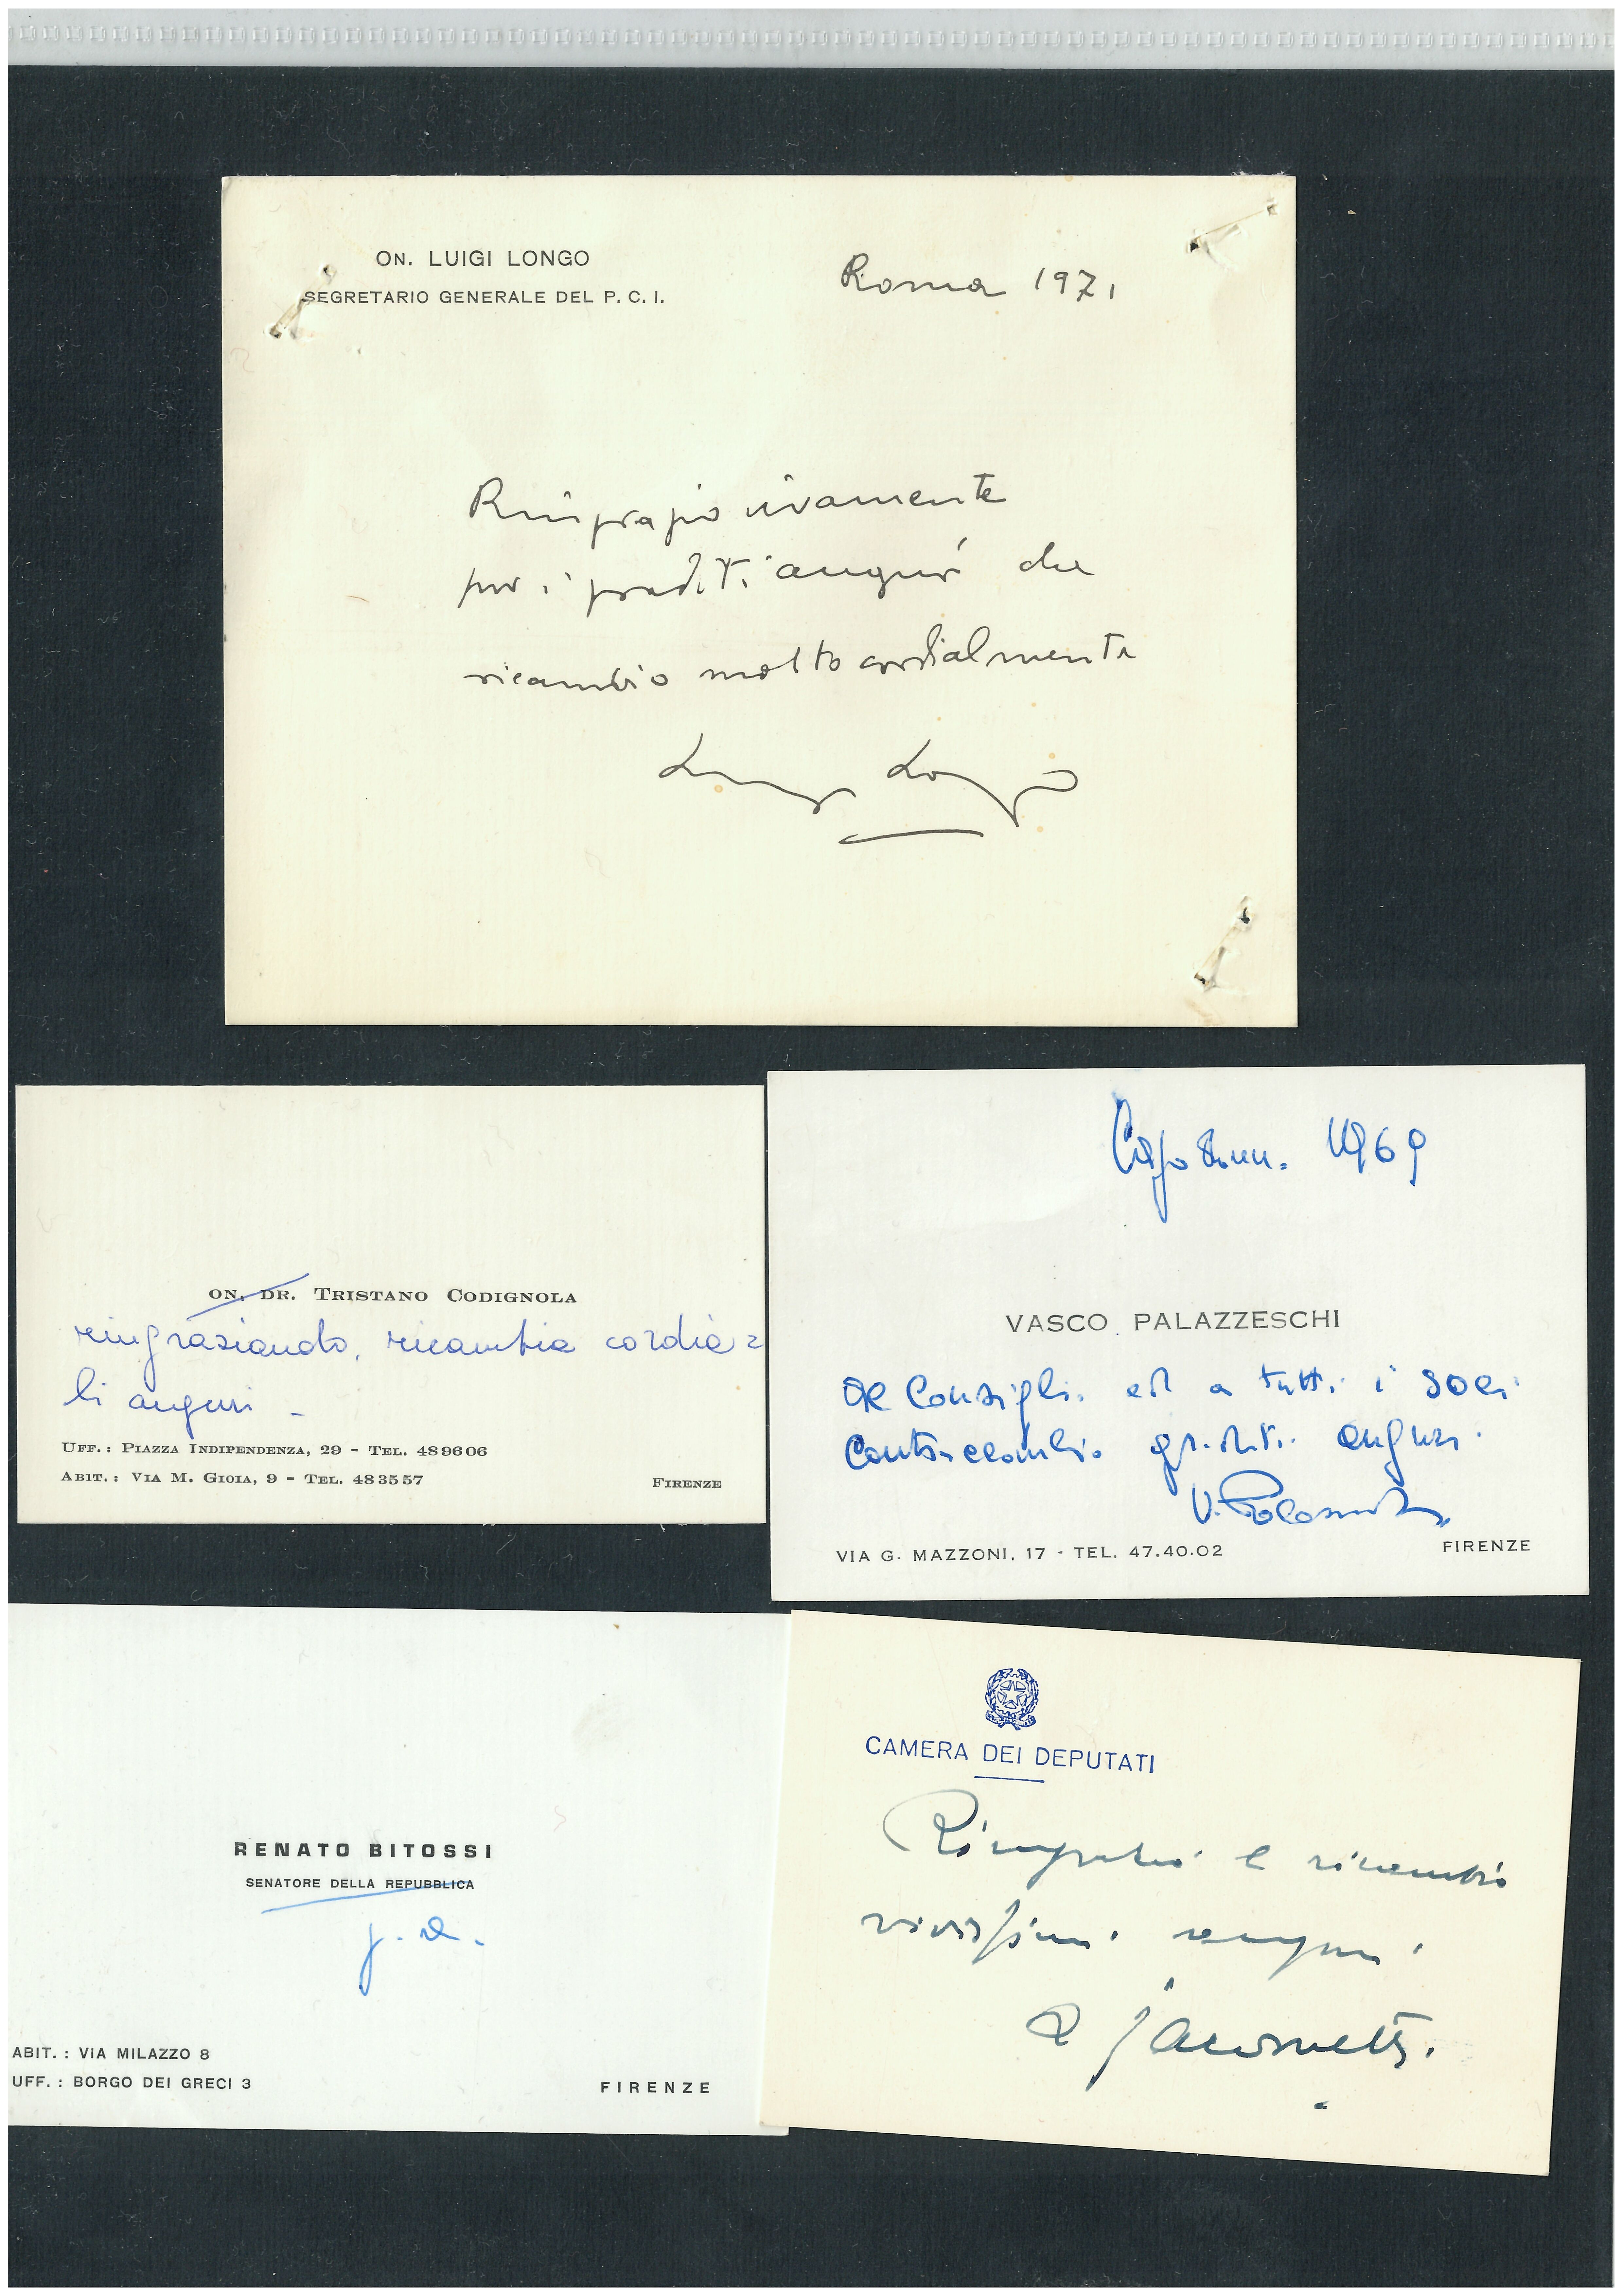 ON. LUIGI LONGO
SEGRETARIO GENERALE DEL P. C. I.
Roma 1971
Ringrazio vivamente
per i graditi auguri che
ricambio molto cordialmente
Luigi Longo
ON. DR. TRISTANO CODIGNOLA
ringraziando, ricambia cordia=
li auguri -
UFF.: PIAZZA INDIPENDENZA, 29 - TEL. 489606
ABIT.: VIA M. GIOIA, 9 - TEL. 483557
FIRENZE
1969
VASCO PALAZZESCHI
Al Consiglio ed a tutti i soci
Contraccambio graditi auguri.
V. Palazzeschi
VIA G. MAZZONI, 17 - TEL. 47.40.02
FIRENZE
RENATO BITOSSI
SENATORE DELLA REPUBBLICA
ABIT. : VIA MILAZZO 8
UFF. : BORGO DEI GRECI 3
FIRENZE
CAMERA DEI DEPUTATI
Ringrazio e ricambio
vivissimi auguri
Jacometti